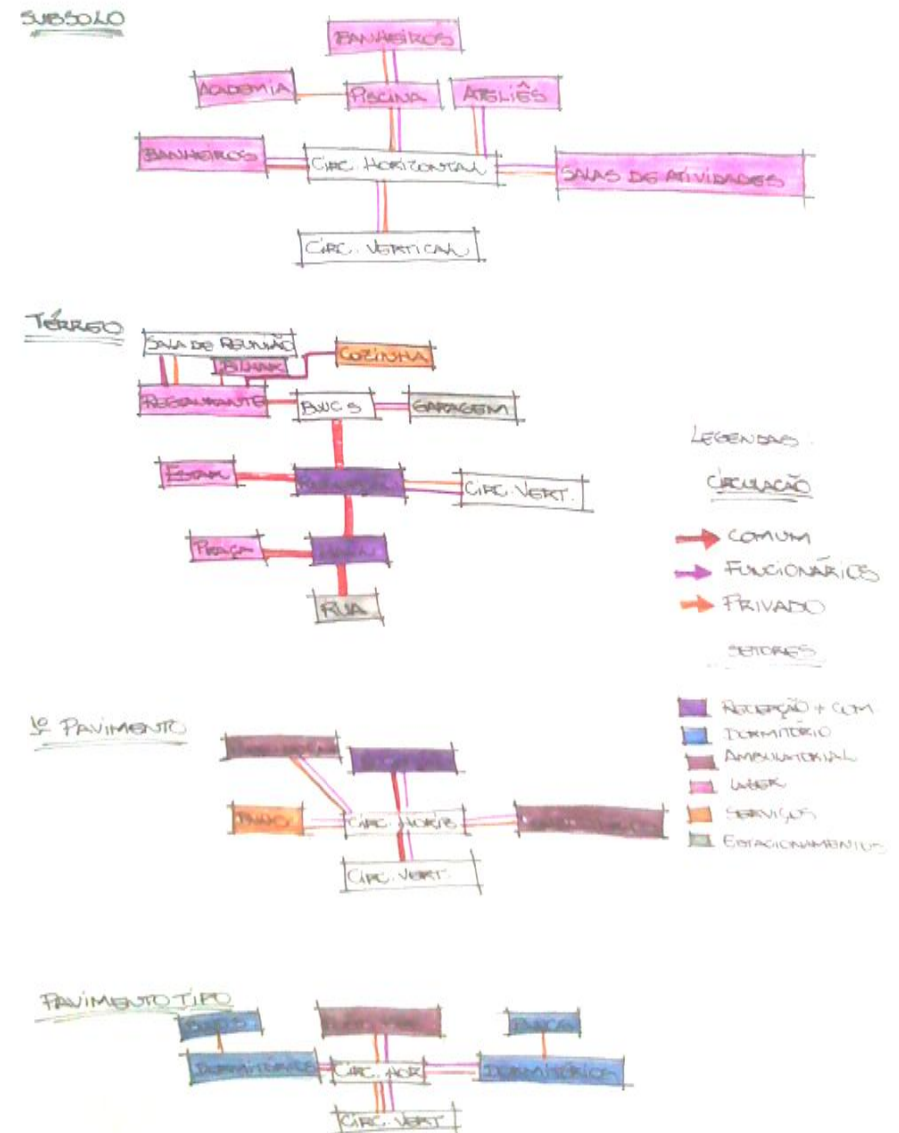 SUBSOLO
BANHEIROS
ACADEMIA
PISCINA
ATELIÊS
BANHEIROS
CIRC. HORIZONTAL
SALAS DE ATIVIDADES
CIRC. VERTICAL
TÉRREO
SALA DE REUNIÃO
BILHAR
COZINHA
RESTAURANTE
BWCS
GARAGEM
ESTAR
CIRC. VERT.
PRAÇA
RUA
LEGENDAS
CIRCULAÇÃO
COMUM
FUNCIONÁRIOS
PRIVADO
SETORES
RECEPÇÃO + COM
DORMITÓRIO
AMBULATORIAL
LAZER
SERVIÇOS
ESTACIONAMENTOS
1º PAVIMENTO
CIRC. HORIZ
CIRC. VERT.
PAVIMENTO TIPO
DORMITÓRIOS
CIRC. HOR
DORMITÓRIOS
CIRC. VERT